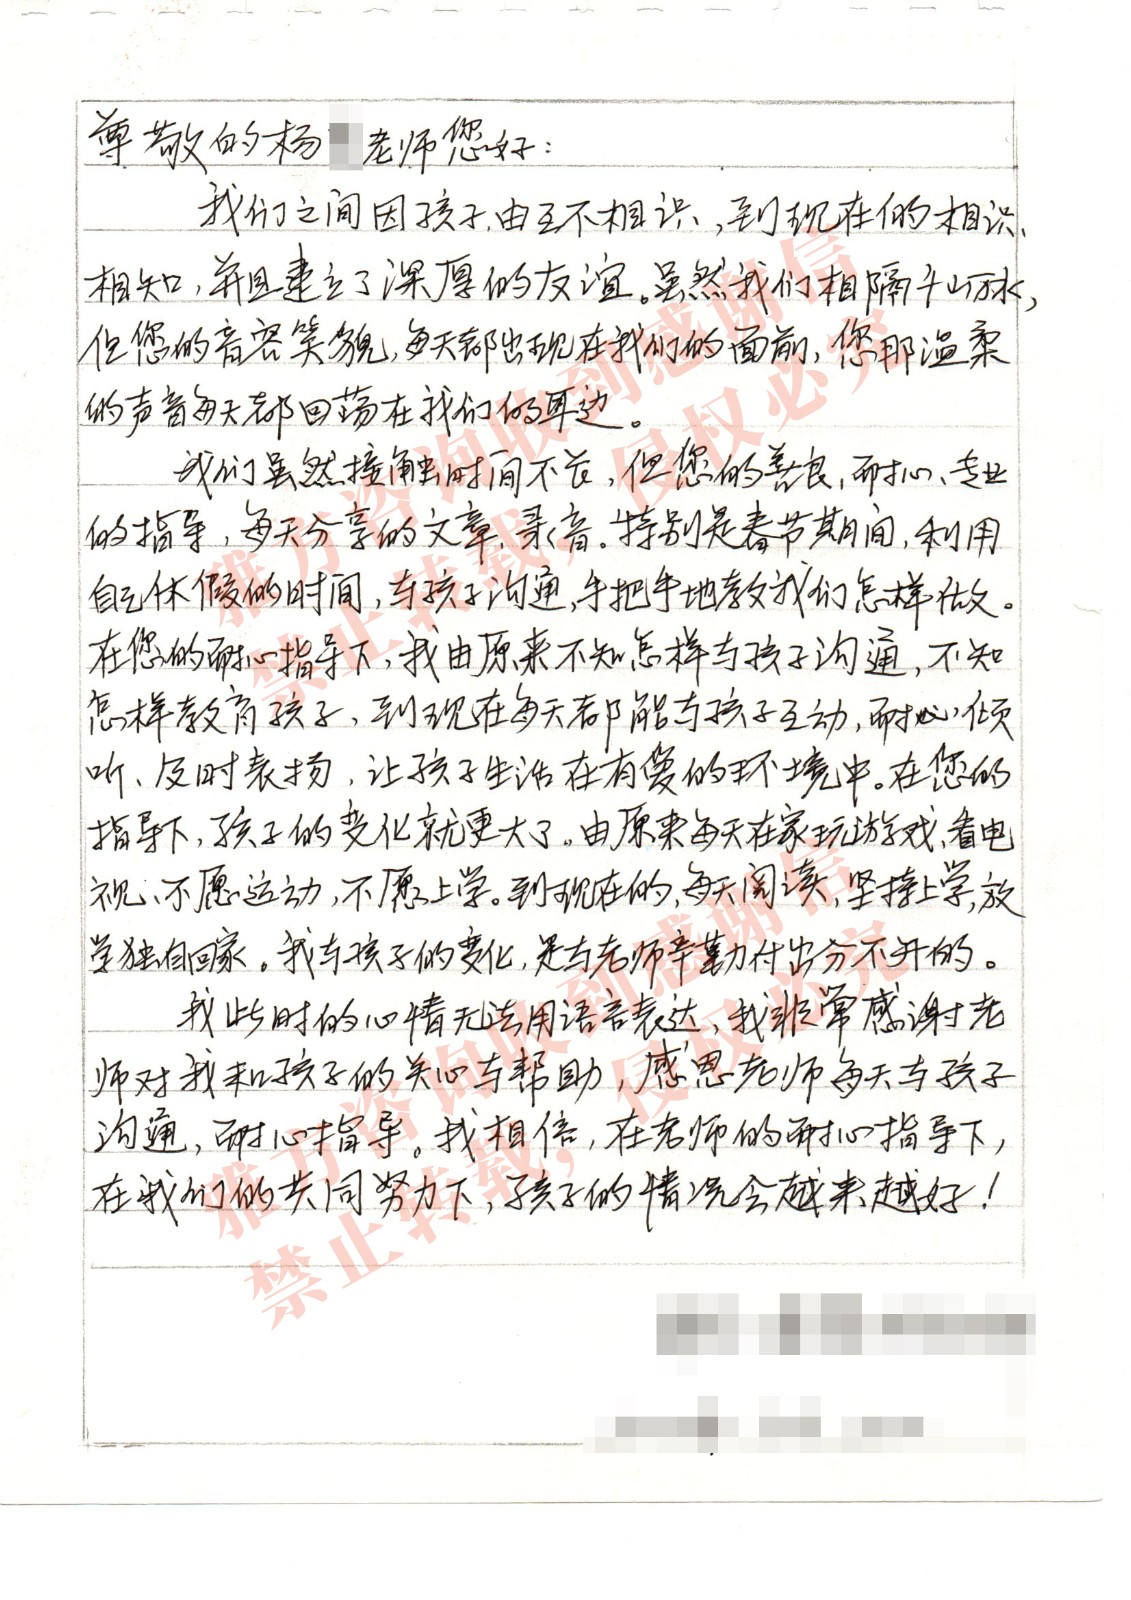 尊敬的杨 老师您好：
我们之间因孩子，由互不相识，到现在的相识、
相知，并且建立了深厚的友谊。虽然我们相隔千山万水，
但您的音容笑貌，每天都出现在我们的面前，您那温柔
的声音每天都回荡在我们的耳边。
我们虽然接触时间不长，但您的善良，耐心、专业
的指导，每天分享的文章，录音。特别是春节期间，利用
自己休假的时间，与孩子沟通，手把手地教我们怎样做。
在您的耐心指导下，我由原来不知怎样与孩子沟通，不知
怎样教育孩子，到现在每天都能与孩子互动，耐心倾
听、及时表扬，让孩子生活在有爱的环境中。在您的
指导下，孩子的变化就更大了。由原来每天在家玩游戏、看电
视、不愿运动，不愿上学。到现在的，每天阅读，坚持上学，放
学独自回家。我与孩子的变化，是与老师辛勤付出分不开的。
我此时的心情无法用语言表达，我非常感谢老
师对我和孩子的关心与帮助，感恩老师每天与孩子
沟通，耐心指导。我相信，在老师的耐心指导下，
在我们的共同努力下，孩子的情况会越来越好！
雅力咨询收到感谢信
禁止转载，侵权必究
雅力咨询收到感谢信
禁止转载，侵权必究